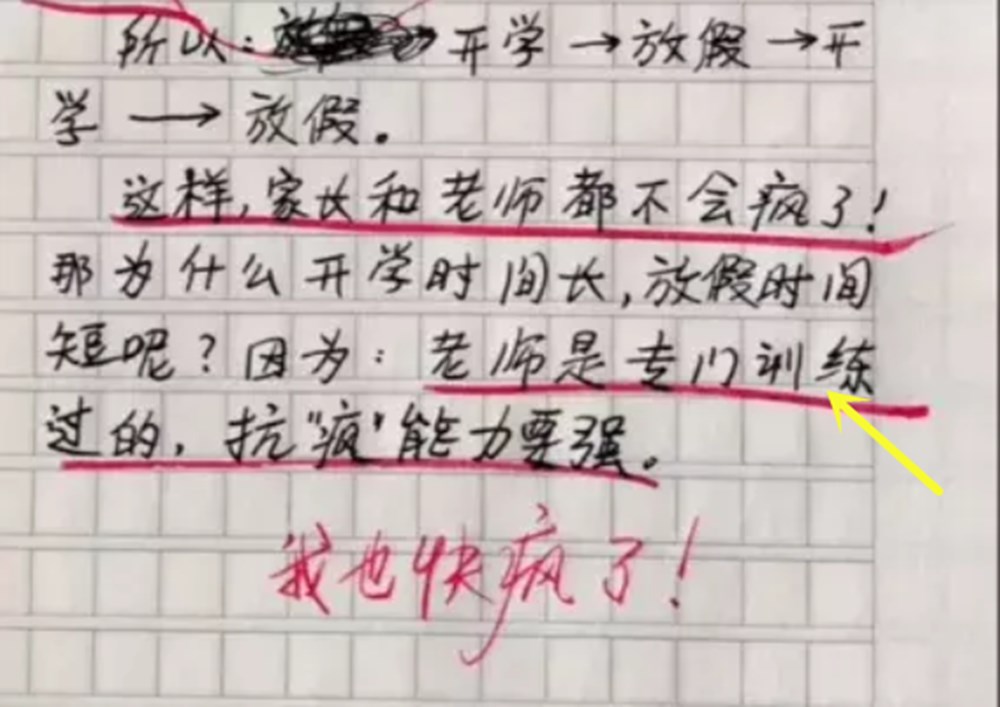 所以：开学→放假→开
学→放假。
这样，家长和老师都不会疯了！
那为什么开学时间长，放假时间
短呢？因为：老师是专门训练
过的，抗“疯”能力要强。
我也快疯了！